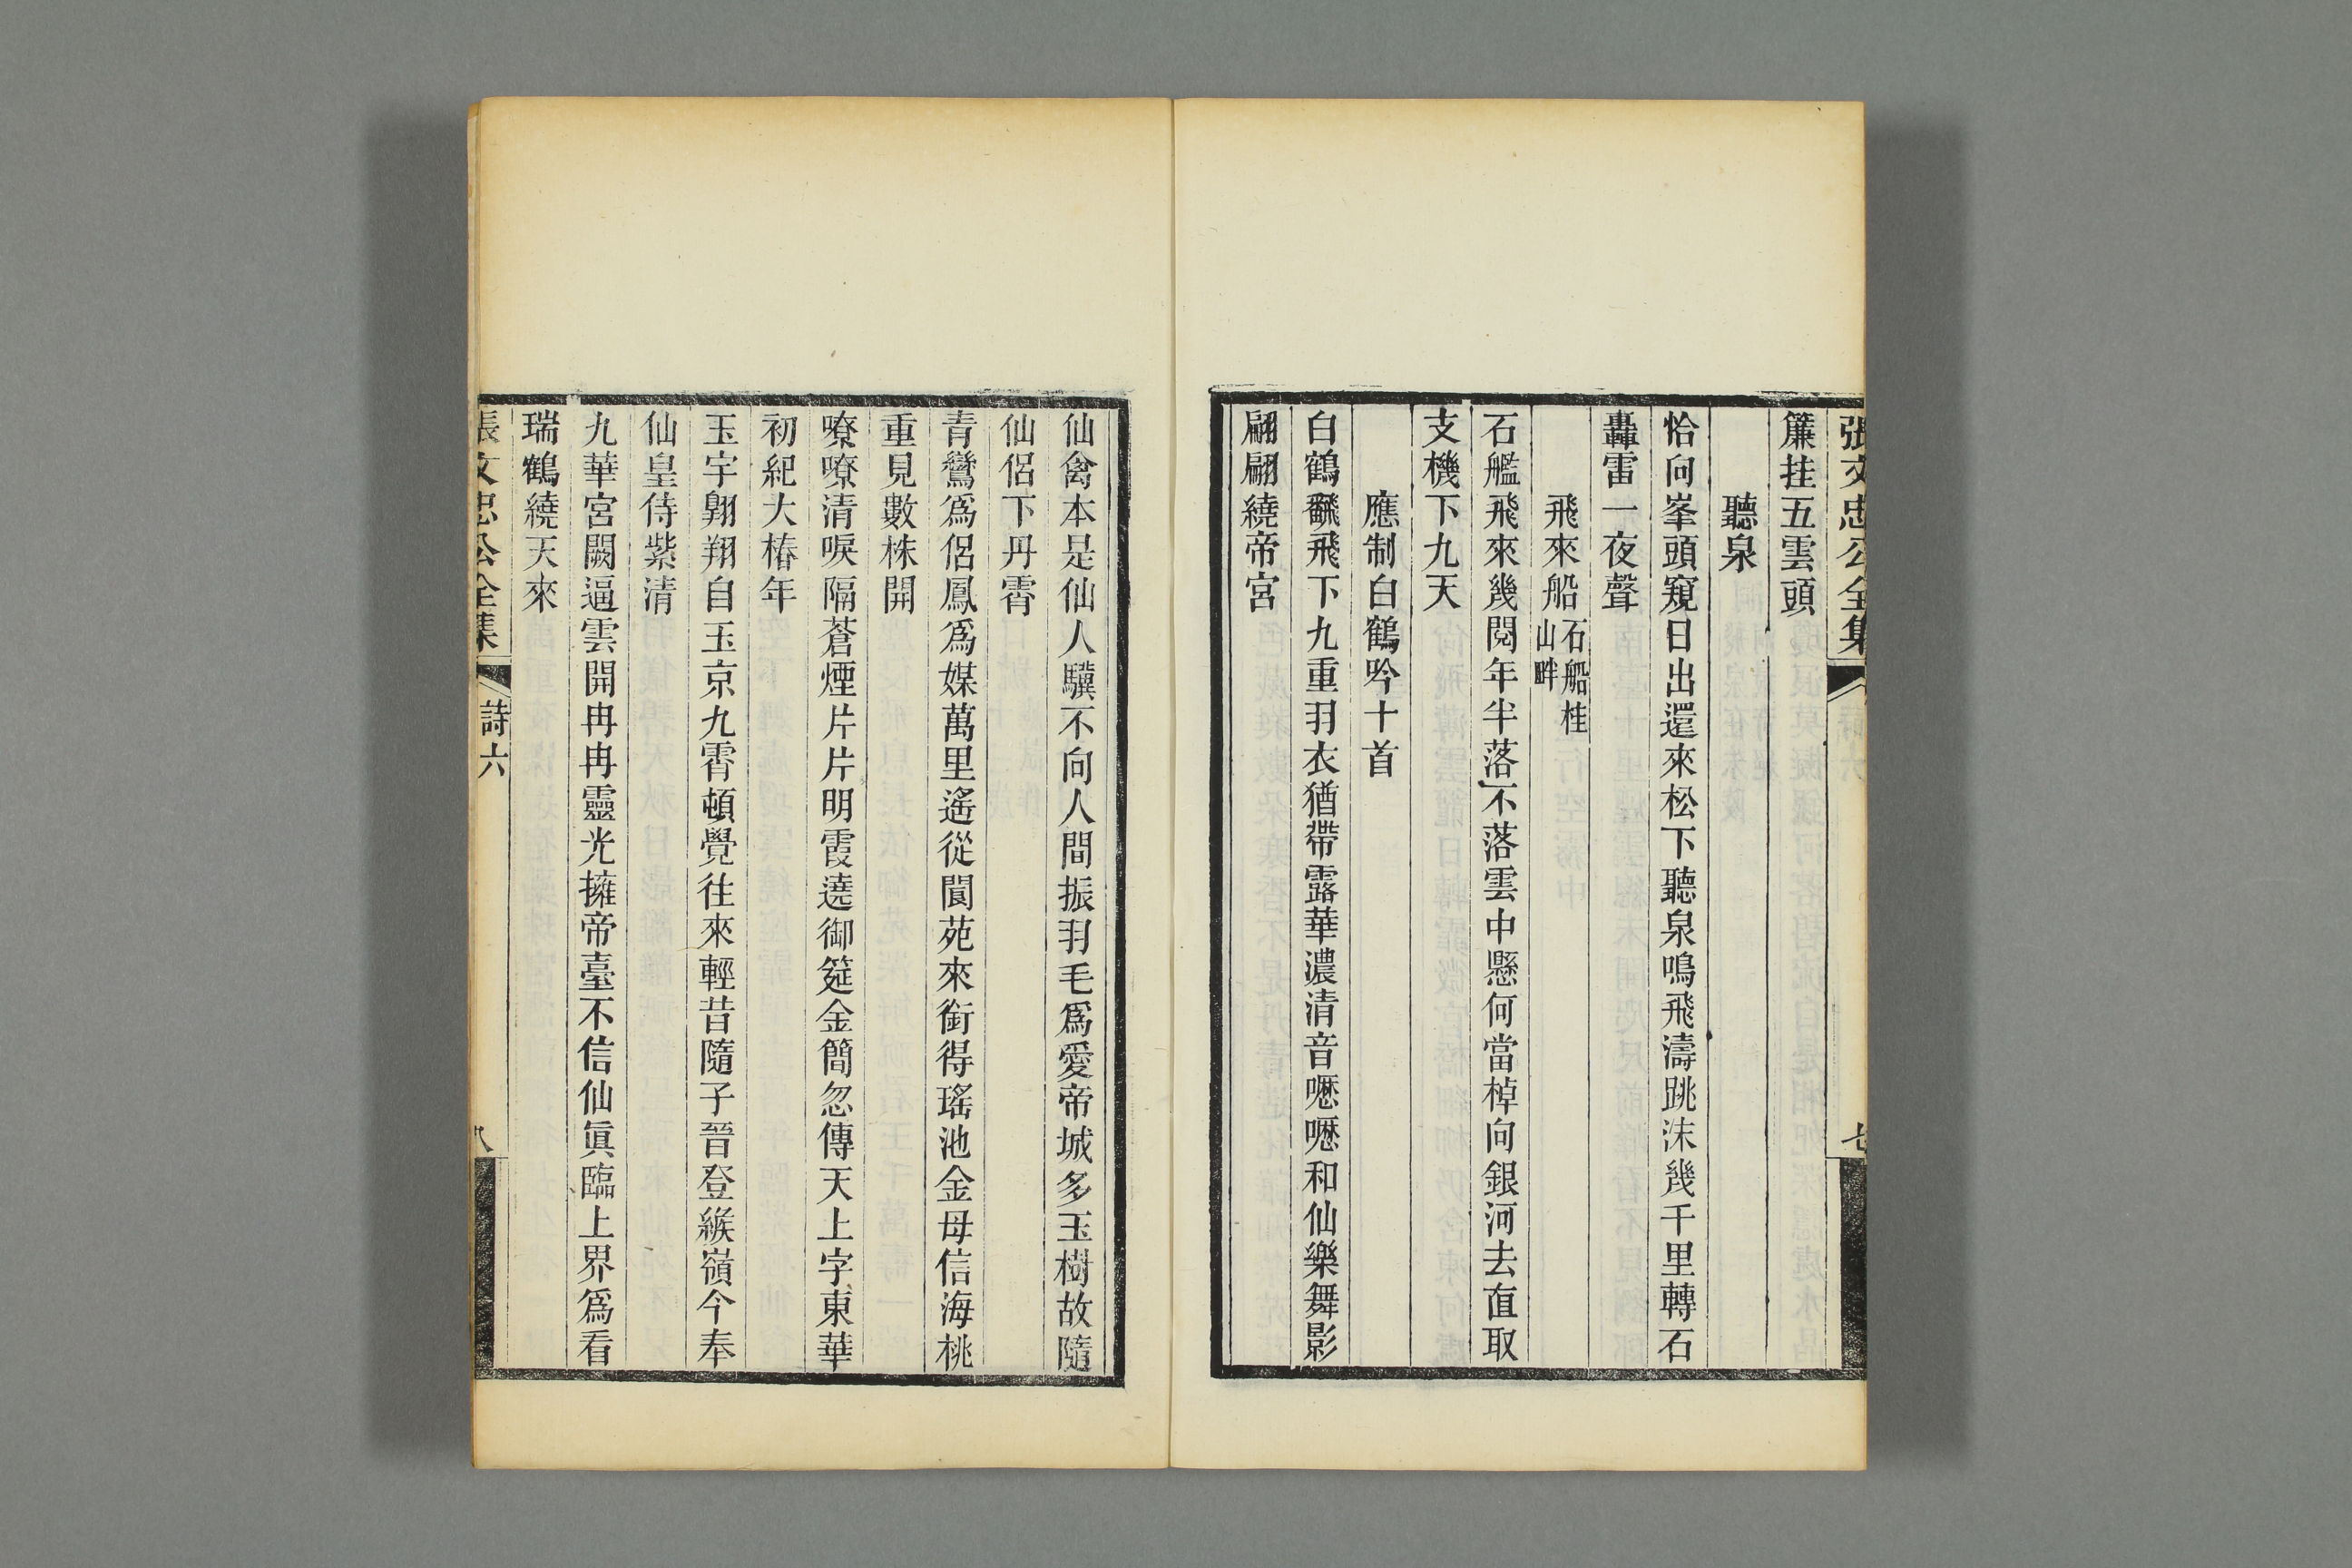 張文忠公全集
詩六
七
簾挂五雲頭
聽泉
恰向峯頭窺日出還來松下聽泉鳴飛濤跳沫幾千里轉石
轟雷一夜聲
飛來船石船桂
山畔
石艦飛來幾閱年半落不落雲中懸何當棹向銀河去直取
支機下九天
應制白鶴吟十首
白鶴飜飛下九重羽衣猶帶露華濃清音嚦嚦和仙樂舞影
翩翩繞帝宮
仙禽本是仙人驥不向人間振羽毛爲愛帝城多玉樹故隨
仙侶下丹霄
青鸞爲侶鳳爲媒萬里遙從閬苑來銜得瑤池金母信海桃
重見數株開
嘹嘹清唳隔蒼煙片片明霞遶御筵金簡忽傳天上字東華
初紀大椿年
玉宇翺翔自玉京九霄頓覺往來輕昔隨子晉登緱嶺今奉
仙皇侍紫清
九華宮闕逼雲開冉冉靈光擁帝臺不信仙眞臨上界爲看
瑞鶴繞天來
張文忠公全集
詩六
八